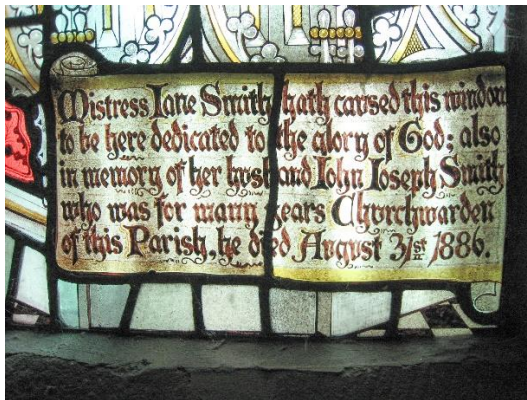 Mistress Iane Smith hath caused this window
to be here dedicated to the glory of God; also
in memory of her husband Iohn Ioseph Smith
who was for many years Chvrchwarden
of this Parish, he died Avgvst 31st 1886.